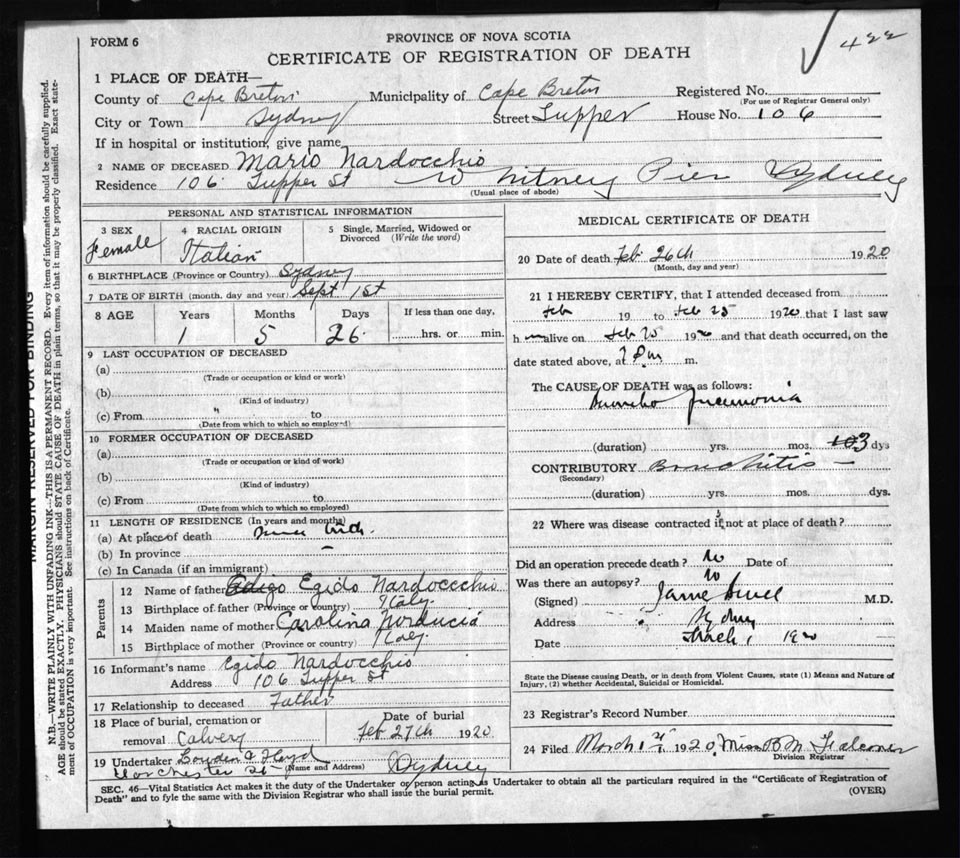 422
FORM 6
PROVINCE OF NOVA SCOTIA
CERTIFICATE OF REGISTRATION OF DEATH
1 PLACE OF DEATH—
County of Cape Breton Municipality of Cape Breton Registered No.
(For use of Registrar General only)
City or Town Sydney Street Tupper House No. 106
If in hospital or institution, give name
2 NAME OF DECEASED Mario Nardocchio
Residence 106 Tupper St Whitney Pier Sydney
(Usual place of abode)
PERSONAL AND STATISTICAL INFORMATION
3 SEX 4 RACIAL ORIGIN 5 Single, Married, Widowed or
Divorced (Write the word)
Female Italian
6 BIRTHPLACE (Province or Country) Sydney
7 DATE OF BIRTH (month, day and year) Sept 1st
8 AGE Years Months Days If less than one day,
1 5 26 hrs. or min.
9 LAST OCCUPATION OF DECEASED
(a)
(Trade or occupation or kind or work)
(b)
(Kind of industry)
(c) From " to
(Date from which to which so employed)
10 FORMER OCCUPATION OF DECEASED
(a)
(Trade or occupation or kind of work)
(b)
(Kind of industry)
(c) From to
(Date from which to which so employed)
11 LENGTH OF RESIDENCE (In years and months)
(a) At place of death
(b) In province —
(c) In Canada (if an immigrant)
Parents
12 Name of father Egido Nardoccchio
13 Birthplace of father (Province or country) Italy
14 Maiden name of mother Carolina Norducia
15 Birthplace of mother (Province or country) Italy
16 Informant's name Egido Nardocchio
Address 106 Tupper St
17 Relationship to deceased Father
18 Place of burial, cremation or Date of burial
removal Calvery Feb 27th 1920
19 Undertaker Lowden & Floyd
(Name and Address)
Dorchester St Sydney
MEDICAL CERTIFICATE OF DEATH
20 Date of death Feb 26th 1920
(Month, day and year)
21 I HEREBY CERTIFY, that I attended deceased from
Feb 19 to Feb 25 1920 that I last saw
h alive on Feb 25 1920 and that death occurred, on the
date stated above, at m.
The CAUSE OF DEATH was as follows:
Pneumonia
(duration) yrs. mos. 3 dys
CONTRIBUTORY Bronchitis —
(Secondary)
(duration) yrs. mos. dys.
22 Where was disease contracted if not at place of death?
Did an operation precede death? No Date of
Was there an autopsy? No
(Signed) M.D.
Address Sydney
Date March 1 1920
State the Disease causing Death, or in death from Violent Causes, state (1) Means and Nature of
Injury, (2) whether Accidental, Suicidal or Homicidal.
23 Registrar's Record Number
24 Filed March 1st 1920 Miss B M Falconer
Division Registrar
SEC. 46—Vital Statistics Act makes it the duty of the Undertaker or person acting as Undertaker to obtain all the particulars required in the "Certificate of Registration of
Death" and to fyle the same with the Division Registrar who shall issue the burial permit. (OVER)
MARGIN RESERVED FOR BINDING
N.B.—WRITE PLAINLY WITH UNFADING INK—THIS IS A PERMANENT RECORD. Every item of information should be carefully supplied.
AGE should be stated EXACTLY. PHYSICIANS should STATE CAUSE OF DEATH in plain terms, so that it may be properly classified. Exact state-
ment of OCCUPATION is very important. See instructions on back of Certificate.